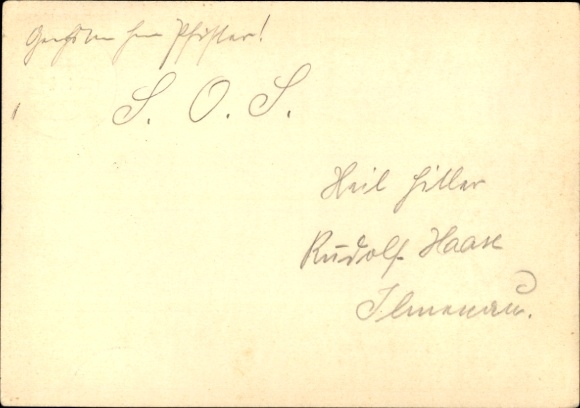 Geehrter Herr Pfister!
S. O. S.
Heil Hitler
Rudolf Haase
Ilmenau.